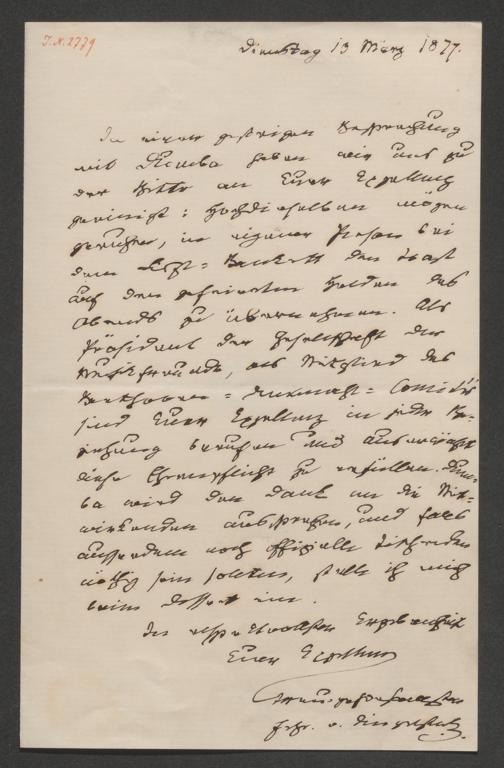 J.N. 2779
Dienstag 13 März 1877.
In einer gestrigen Besprechung
mit Dumba haben wir uns zu
der Bitte an Euer Exzellenz
geeinigt: Hochdieselben mögen
geruhen, in eigener Person bei
dem Liszt-Bankett den Toast
auf den gefeierten Helden des
Abends zu übernehmen. Als
Präsident der Gesellschaft der
Musikfreunde, als Mitglied des
Beethoven-Denkmal-Comités
sind Euer Exzellenz in jeder Be-
ziehung berufen und auserwählt
diese Ehrenpflicht zu erfüllen. Dum-
ba wird den Dank an die Mit-
wirkenden aussprechen, und falls
ausserdem noch offizielle Tischreden
nöthig sein sollten, stelle ich mich
beim Dessert ein.
In respektvollster Ergebenheit
Euer Exzellenz
treugehorsamster
Frhr. v. Dingelstedt.